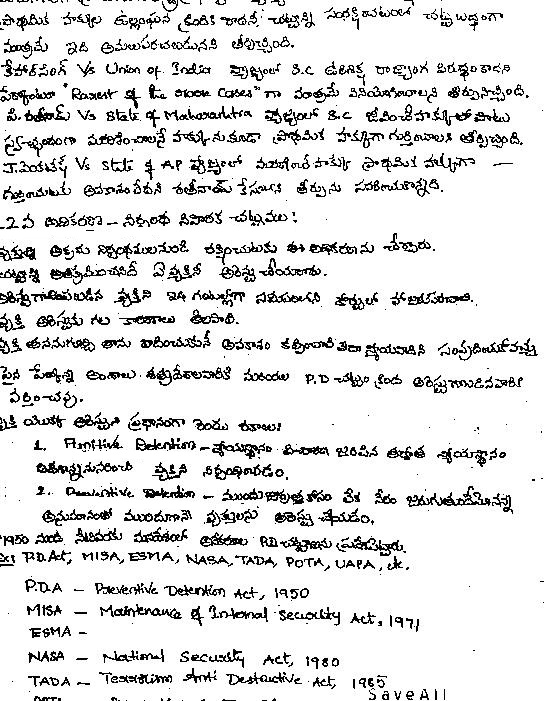 ప్రాథమిక హక్కుల ఉల్లంఘన క్రిందికి రాదని, చట్టాన్ని సవరించటంలో చట్టబద్ధంగా
మాత్రమే ఇది అమలుపరచబడునని తీర్పిచ్చింది.
కేహార్‌సింగ్ Vs Union of India వ్యాజ్యంలో S.C ఉరిశిక్ష రాజ్యాంగ విరుద్ధం కాదని
"Rarest of the rare Cases" గా మాత్రమే వినియోగించాలని తీర్పునిచ్చింది.
పి. రతీనామ్ Vs State of Maharashtra వ్యాజ్యంలో S.C జీవించే హక్కుతో పాటు
స్వచ్ఛందంగా మరణించాలనే హక్కును కూడా ప్రాథమిక హక్కుగా గుర్తించాలని తీర్పిచ్చింది.
Vs State of AP వ్యాజ్యంలో మరణించే హక్కు ప్రాథమిక హక్కుగా —
గుర్తించుటకు అవకాశం లేదని రతీనామ్ కేసులోని తీర్పును సవరించుకొన్నది.
22వ అధికరణ – నిర్బంధ నివారక చట్టములు:
వ్యక్తిని అక్రమ నిర్బంధములనుండి రక్షించుటకు ఈ అధికరణను చేర్చారు.
చట్టాన్ని అతిక్రమించనిదే ఏ వ్యక్తిని అరెస్టు చేయరాదు.
అరెస్టుగావించబడిన వ్యక్తిని 24 గంటల్లోగా సమీపంలోని కోర్టులో హాజరుపరచాలి.
వ్యక్తి అరెస్టుకు గల కారణాలు తెలపాలి.
వ్యక్తి తనను గూర్చి తాను వాదించుకునే అవకాశం కల్పించాలి లేదా న్యాయవాదిని సంప్రదించుకోవచ్చు
పైన పేర్కొన్న అంశాలు శత్రుదేశాలవారికి మరియు P.D చట్టం క్రింద అరెస్టుగాబడినవారికి
వర్తించవు.
వ్యక్తి యొక్క అరెస్టులు ప్రధానంగా రెండు రకాలు:
1. Punitive Detention – న్యాయస్థానం విచారణ జరిపిన తర్వాత న్యాయస్థానం
వ్యక్తిని నిర్బంధించడం.
2. Preventive Detention – ముందుజాగ్రత్త కోసం లేక నేరం జరుగుతుందేమోనన్న
అనుమానంతో ముందుగానే వ్యక్తులను అరెస్టు చేయడం.
1950 నుండి నేటివరకు మనదేశంలో అనేకరకాల P.D చట్టాలను ప్రవేశపెట్టారు.
Ex: P.D.Act, MISA, ESMA, NASA, TADA, POTA, UAPA, etc.
P.D.A – Preventive Detention Act, 1950
MISA – Maintenance of Internal Security Act, 1971
ESMA –
NASA – National Security Act, 1980
TADA – Terrorism Anti Destructive Act, 1985
SaveAll